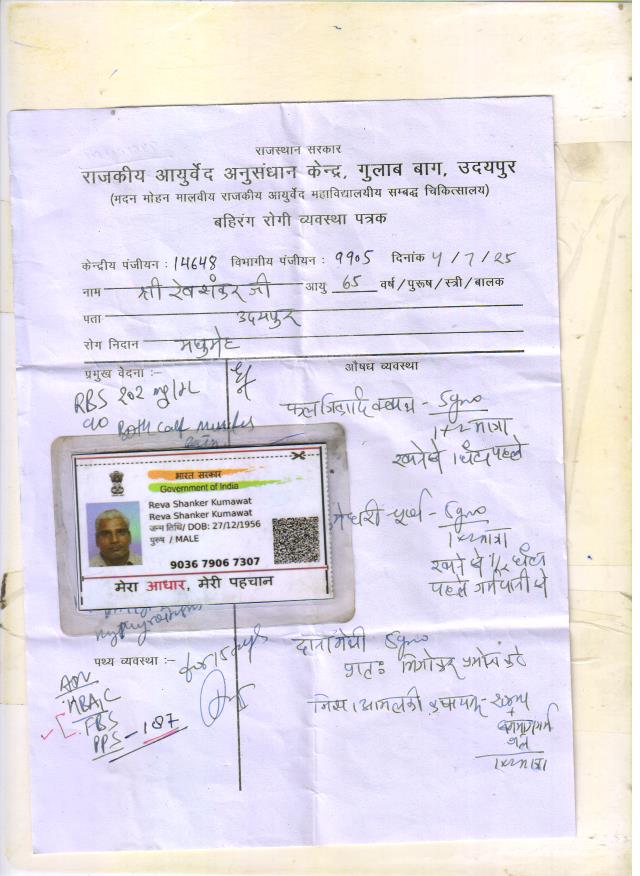 राजस्थान सरकार
राजकीय आयुर्वेद अनुसंधान केन्द्र, गुलाब बाग, उदयपुर
(मदन मोहन मालवीय राजकीय आयुर्वेद महाविद्यालयीय सम्बद्ध चिकित्सालय)
बहिरंग रोगी व्यवस्था पत्रक
केन्द्रीय पंजीयन : 14648 विभागीय पंजीयन : 9905 दिनांक 4/7/25
नाम श्री रेवाशंकर जी आयु 65 वर्ष/पुरूष/स्त्री/बालक
पता उदयपुर
रोग निदान मधुमेह
प्रमुख वेदना :- औषध व्यवस्था
RBS 202 mg/
c/o Both calf muscles
pain
फलत्रिकादि क्वाथ - 5gm
1x2 मात्रा
खाने से 1 घंटा पहले
भारत सरकार
Government of India
Reva Shanker Kumawat
Reva Shanker Kumawat
जन्म तिथि/ DOB: 27/12/1956
पुरुष / MALE
9036 7906 7307
मेरा आधार, मेरी पहचान
चूर्ण - 5gm
1x2 मात्रा
खाने से 1/2 घंटा
पहले गर्म पानी से
पथ्य व्यवस्था :- for 15 days
दाना मेथी 5gm
प्रातः भिगोकर प्रयोग करे
Adv
HBA1C
FBS
PPS - 187
निशा आमलकी
+
1x2 मात्रा